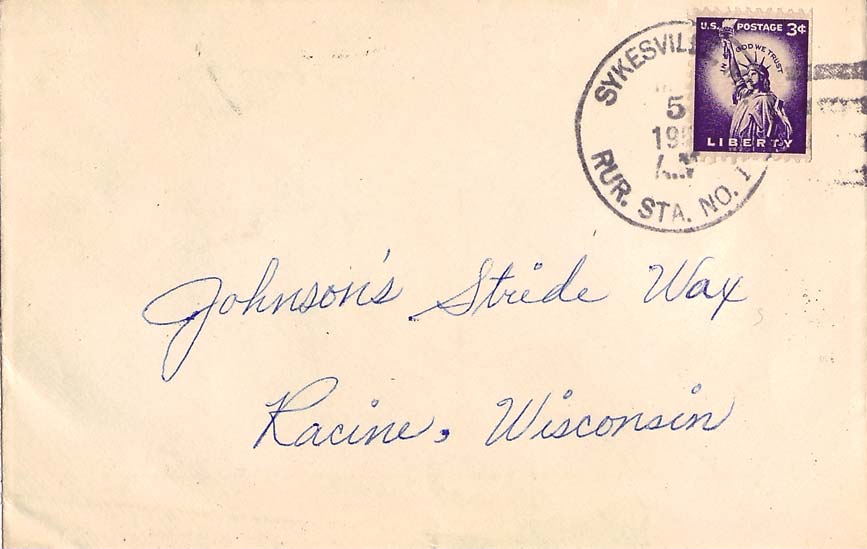 U.S. POSTAGE 3¢
IN GOD WE TRUST
LIBERTY
5
RUR. STA. NO. 1
Johnson's Stride Wax
Racine, Wisconsin